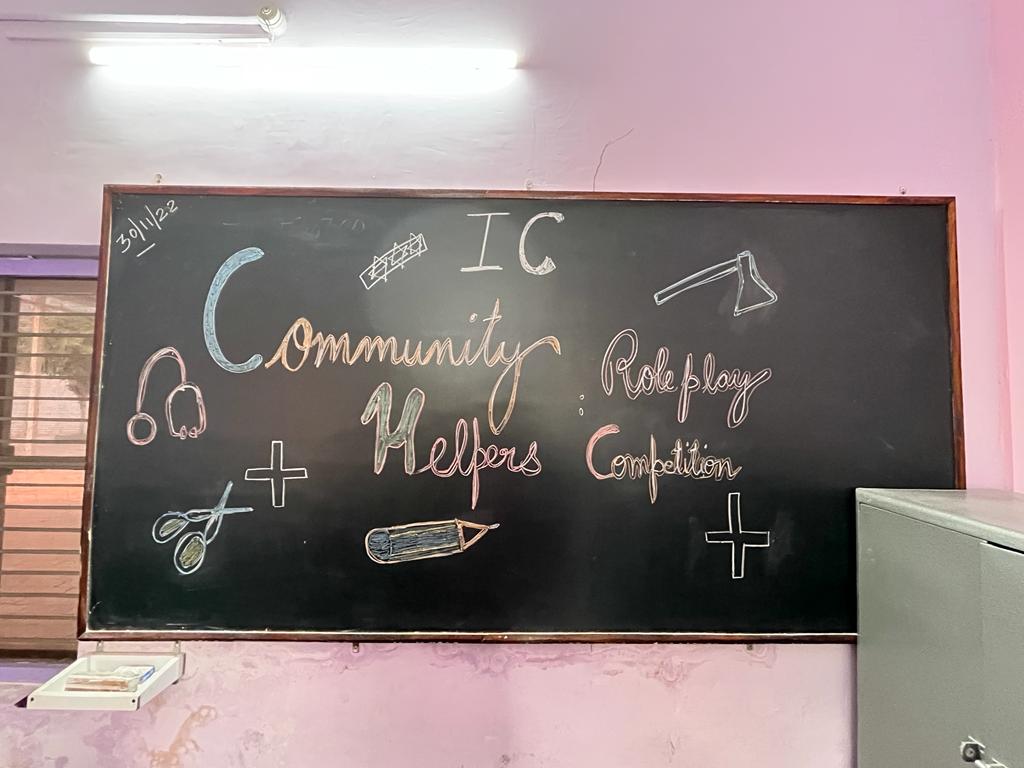 30/11/22
IC
Community
Helpers
: Roleplay
Competition